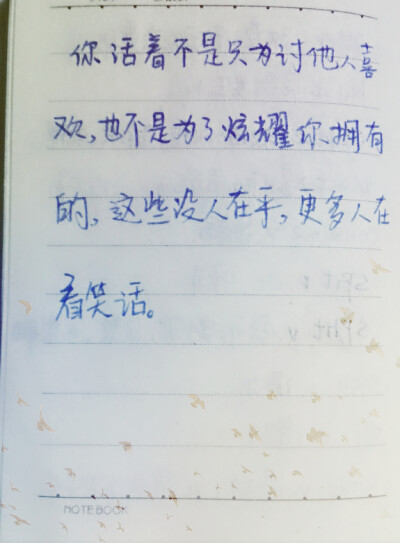 你活着不是只为讨他人喜
欢,也不是为了炫耀你拥有
的,这些没人在乎,更多人在
看笑话。
split
split y
NOTEBOOK